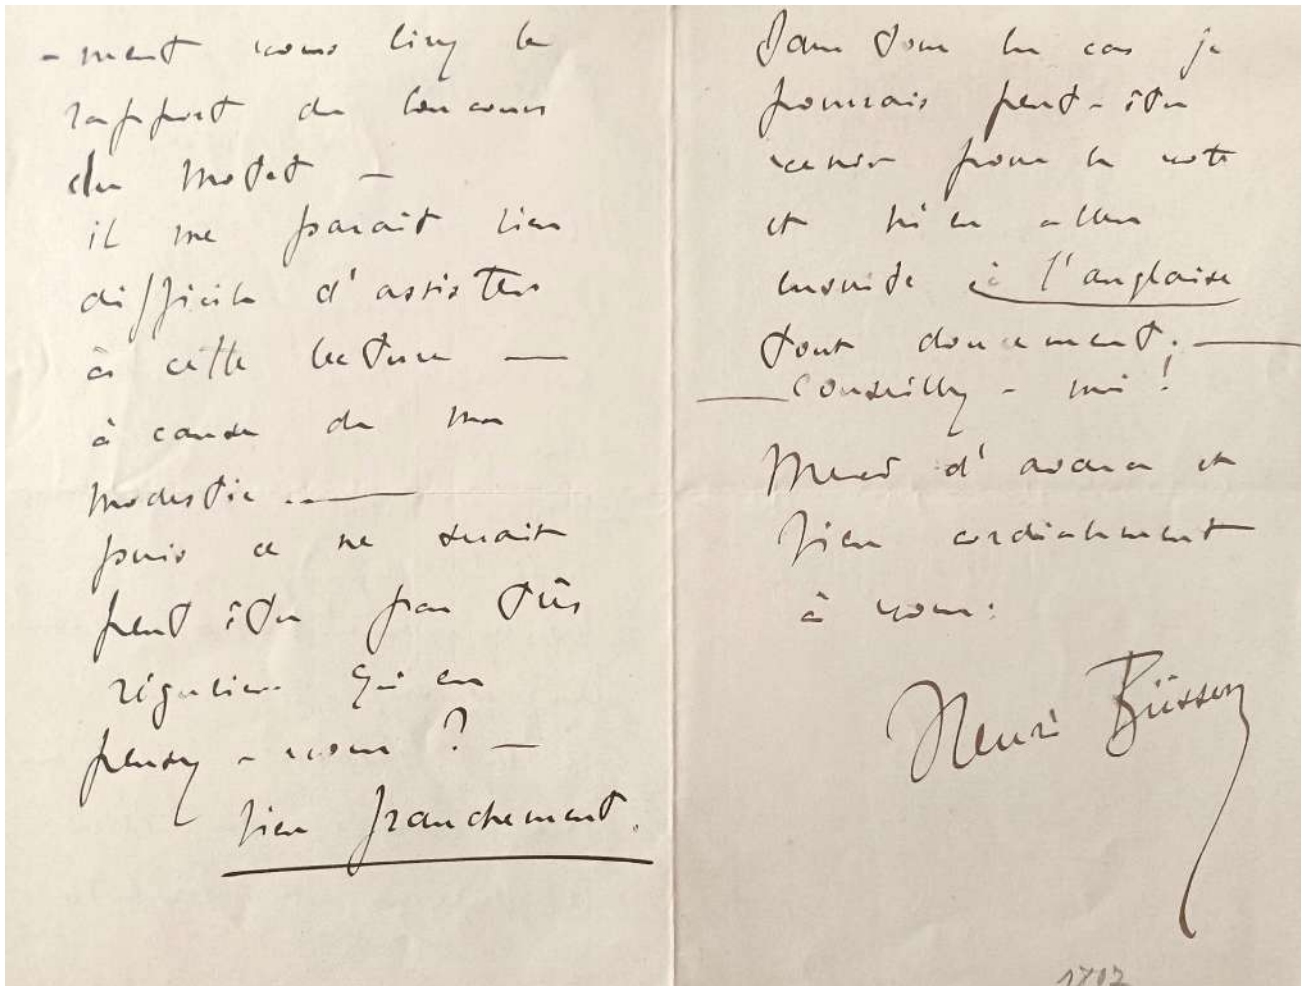 -ment vous lisez le
rapport du Concours
du Motet —
il me parait bien
difficile d'assister
à cette lecture —
à cause de ma
modestie ..—
puis ce ne serait
peut être pas très
régulier. Qu'en
pensez-vous ? —
bien franchement.
Dans tous les cas je
pourrais peut-être
venir pour le vote
et m'en aller
ensuite à l'anglaise
tout doucement. —
— Conseillez-moi !
Merci d'avance et
bien cordialement
à vous :
Henri Büsser
1707